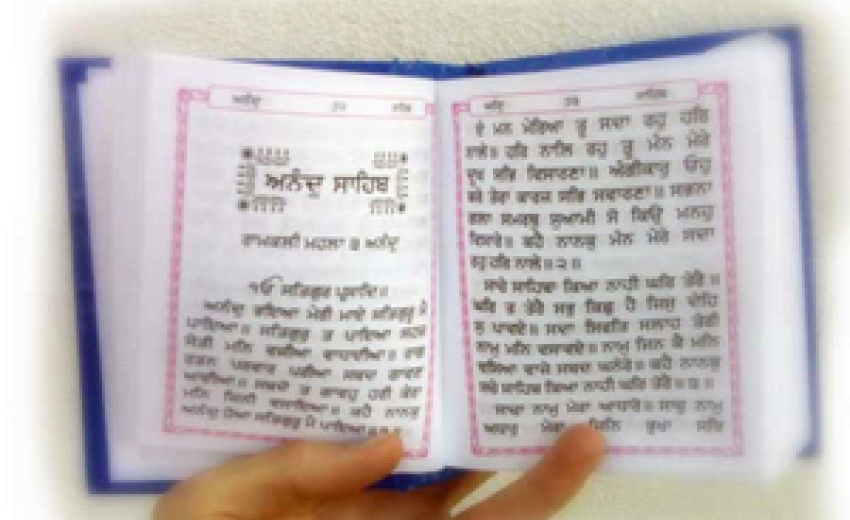 ਅਨੰਦੁ ੩੨ ਸਾਹਿਬ
ਅਨੰਦੁ ਸਾਹਿਬ
ਰਾਮਕਲੀ ਮਹਲਾ ੩ ਅਨੰਦੁ
ੴ ਸਤਿਗੁਰ ਪ੍ਰਸਾਦਿ॥
ਅਨੰਦੁ ਭਇਆ ਮੇਰੀ ਮਾਏ ਸਤਿਗੁਰੂ ਮੈ
ਪਾਇਆ॥ ਸਤਿਗੁਰੁ ਤ ਪਾਇਆ ਸਹਜ
ਸੇਤੀ ਮਨਿ ਵਜੀਆ ਵਾਧਾਈਆ॥ ਰਾਗ
ਰਤਨ ਪਰਵਾਰ ਪਰੀਆ ਸਬਦ ਗਾਵਣ
ਆਈਆ॥ ਸਬਦੋ ਤ ਗਾਵਹੁ ਹਰੀ ਕੇਰਾ
ਮਨਿ ਜਿਨੀ ਵਸਾਇਆ॥ ਕਹੈ ਨਾਨਕੁ
ਅਨੰਦੁ ਹੋਆ ਸਤਿਗੁਰੂ ਮੈ ਪਾਇਆ॥੧॥
ਅਨੰਦੁ ੩੩ ਸਾਹਿਬ
ਏ ਮਨ ਮੇਰਿਆ ਤੂ ਸਦਾ ਰਹੁ ਹਰਿ
ਨਾਲੇ॥ ਹਰਿ ਨਾਲਿ ਰਹੁ ਤੂ ਮੰਨ ਮੇਰੇ
ਦੂਖ ਸਭਿ ਵਿਸਾਰਣਾ॥ ਅੰਗੀਕਾਰੁ ਓਹੁ
ਕਰੇ ਤੇਰਾ ਕਾਰਜ ਸਭਿ ਸਵਾਰਣਾ॥ ਸਭਨਾ
ਗਲਾ ਸਮਰਥੁ ਸੁਆਮੀ ਸੋ ਕਿਉ ਮਨਹੁ
ਵਿਸਾਰੇ॥ ਕਹੈ ਨਾਨਕੁ ਮੰਨ ਮੇਰੇ ਸਦਾ
ਰਹੁ ਹਰਿ ਨਾਲੇ॥੨॥
ਸਾਚੇ ਸਾਹਿਬਾ ਕਿਆ ਨਾਹੀ ਘਰਿ ਤੇਰੈ॥
ਘਰਿ ਤ ਤੇਰੈ ਸਭੁ ਕਿਛੁ ਹੈ ਜਿਸੁ ਦੇਹਿ
ਸੁ ਪਾਵਏ॥ ਸਦਾ ਸਿਫਤਿ ਸਲਾਹ ਤੇਰੀ
ਨਾਮੁ ਮਨਿ ਵਸਾਵਏ॥ ਨਾਮੁ ਜਿਨ ਕੈ ਮਨਿ
ਵਸਿਆ ਵਾਜੇ ਸਬਦ ਘਨੇਰੇ॥ ਕਹੈ ਨਾਨਕੁ
ਸਚੇ ਸਾਹਿਬ ਕਿਆ ਨਾਹੀ ਘਰਿ ਤੇਰੈ॥੩॥
ਸਾਚਾ ਨਾਮੁ ਮੇਰਾ ਆਧਾਰੋ॥ ਸਾਚੁ ਨਾਮੁ
ਅਧਾਰੁ ਮੇਰਾ ਜਿਨਿ ਭੁਖਾ ਸਭਿ